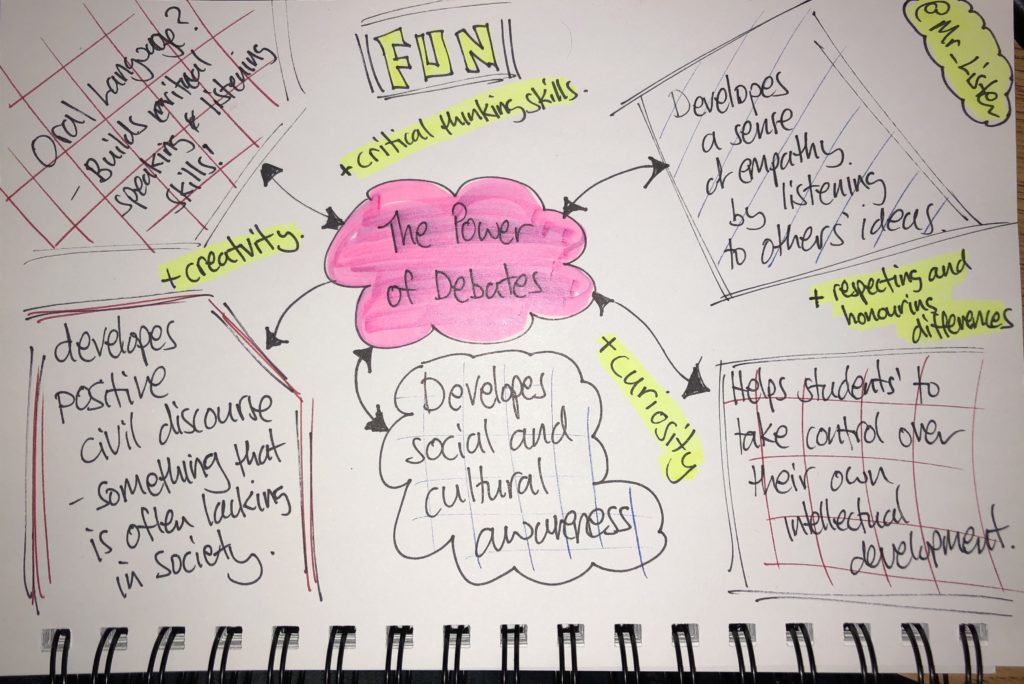 Oral Language?
- Builds critical
speaking & listening
skills!
FUN
+ critical thinking skills.
@Mr_Listen
Developes
a sense
of empathy.
by listening
to others' ideas.
+ creativity.
The Power
of Debates
+ respecting and
honouring
differences
developes
positive
civil discourse
- something that
is often lacking
in society.
Developes
social and
cultural
awareness
+ curiosity
Helps students' to
take control over
their own
intellectual
development.